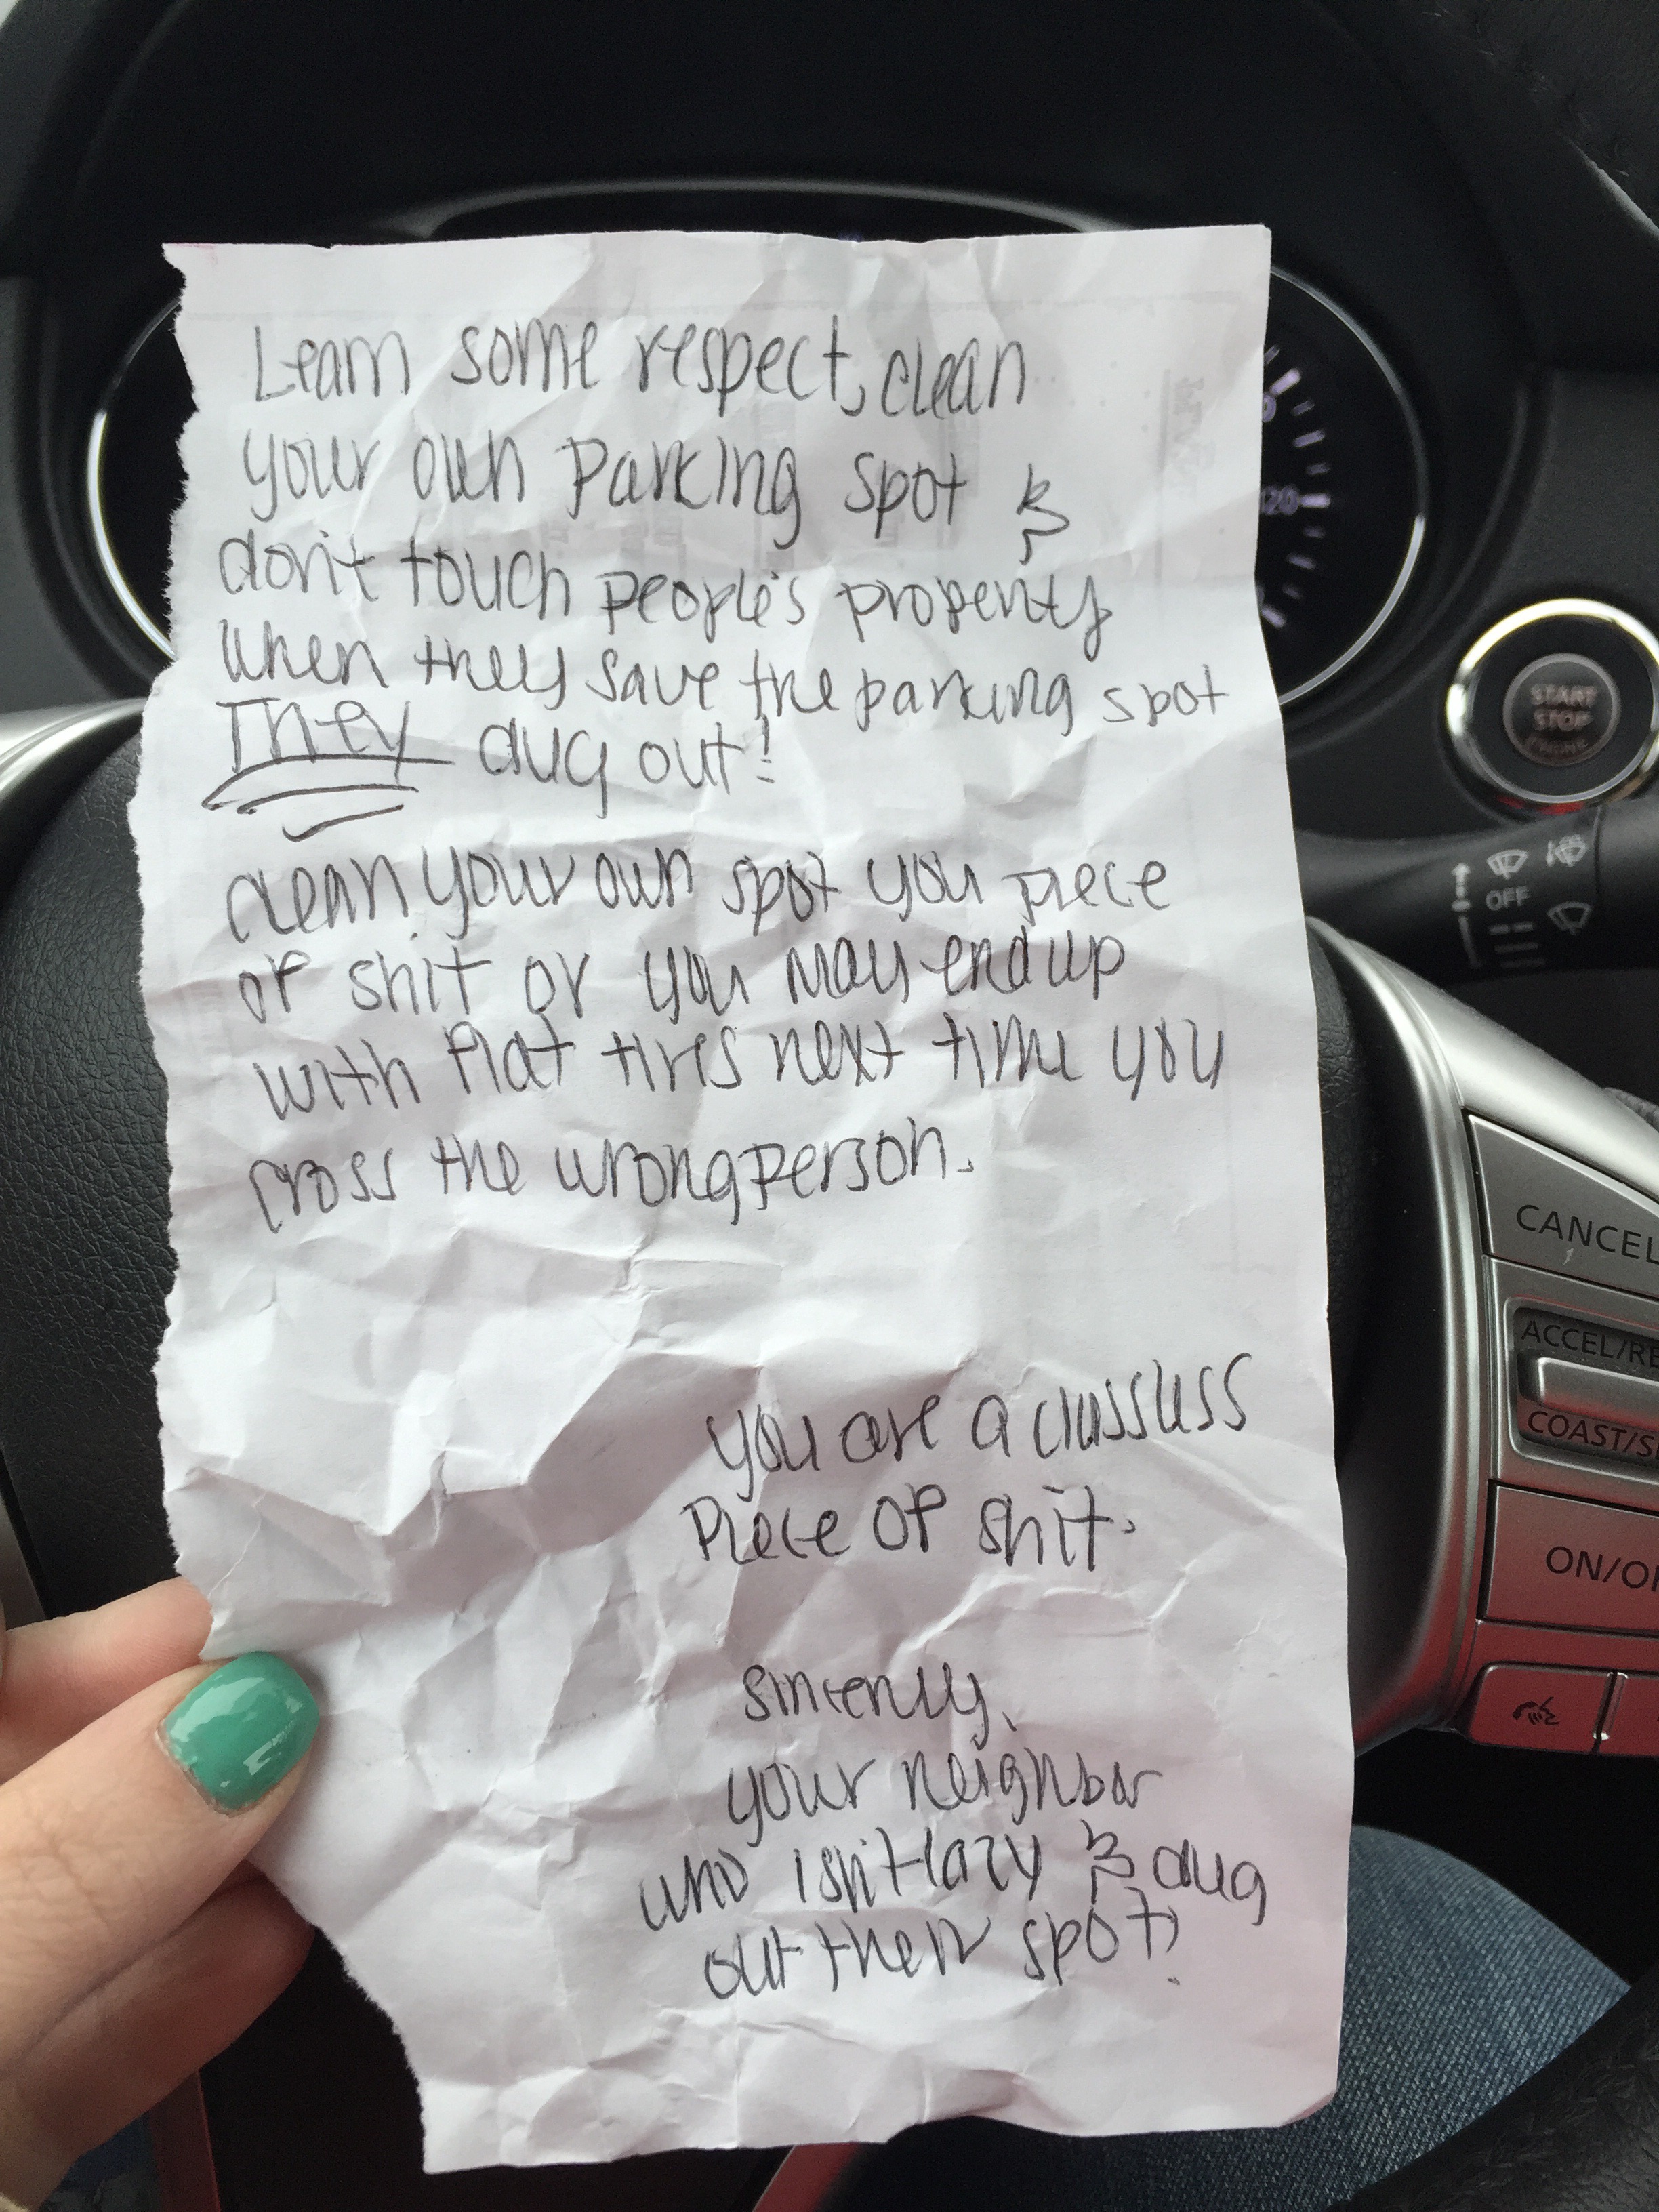 Learn some respect, clean
your own parking spot &
don't touch people's property
when they save the parking spot
They dug out!
clean your own spot you piece
of shit or you may end up
with flat tires next time you
cross the wrong person.
you are a classless
Piece of shit.
sincerely,
your neighbor
who isn't lazy & dug
out their spot!
20
START
STOP
ENGINE
OFF
CANCEL
ACCEL/RE
COAST/S
ON/O